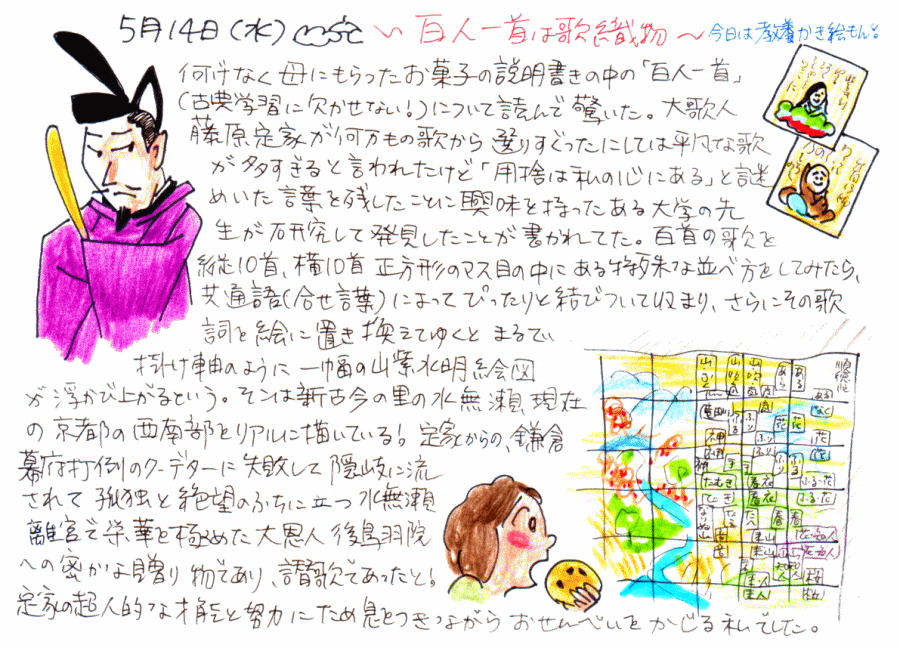 5月14日(水) 〜百人一首は歌織物〜 今日は教養かき絵もん!
何げなく母にもらったお菓子の説明書きの中の「百人一首」
(古典学習に欠かせない!)について読んで驚いた。大歌人
藤原定家が何万もの歌から選りすぐったにしては平凡な歌
が多すぎると言われたけど「用捨は私の心にある」と謎
めいた言葉を残したことに興味を持ったある大学の先
生が研究して発見したことが書かれてた。百首の歌を
縦10首、横10首 正方形のマス目の中にある特殊な並べ方をしてみたら、
共通語(合せ言葉)によってぴったりと結びついて収まり、さらにその歌
詞を絵に置き換えてゆくと まるで、
掛け軸のように一幅の山紫水明絵図
が浮かび上がるという。そこは新古今の里の水無瀬、現在
の京都の西南部をリアルに描いている!定家からの、鎌倉
幕府打倒のクーデターに失敗して隠岐に流
されて孤独と絶望のふちに立つ水無瀬
離宮で栄華を極めた大恩人後鳥羽院
への密かな贈り物であり、讃歌であったと!
定家の超人的な才能と努力にため息をつきながらおせんべいをかじる私でした。
順徳院
ある
ある
なく
花
花
花
ふる・花
ふる・花
たむき
春
春
桜
桜